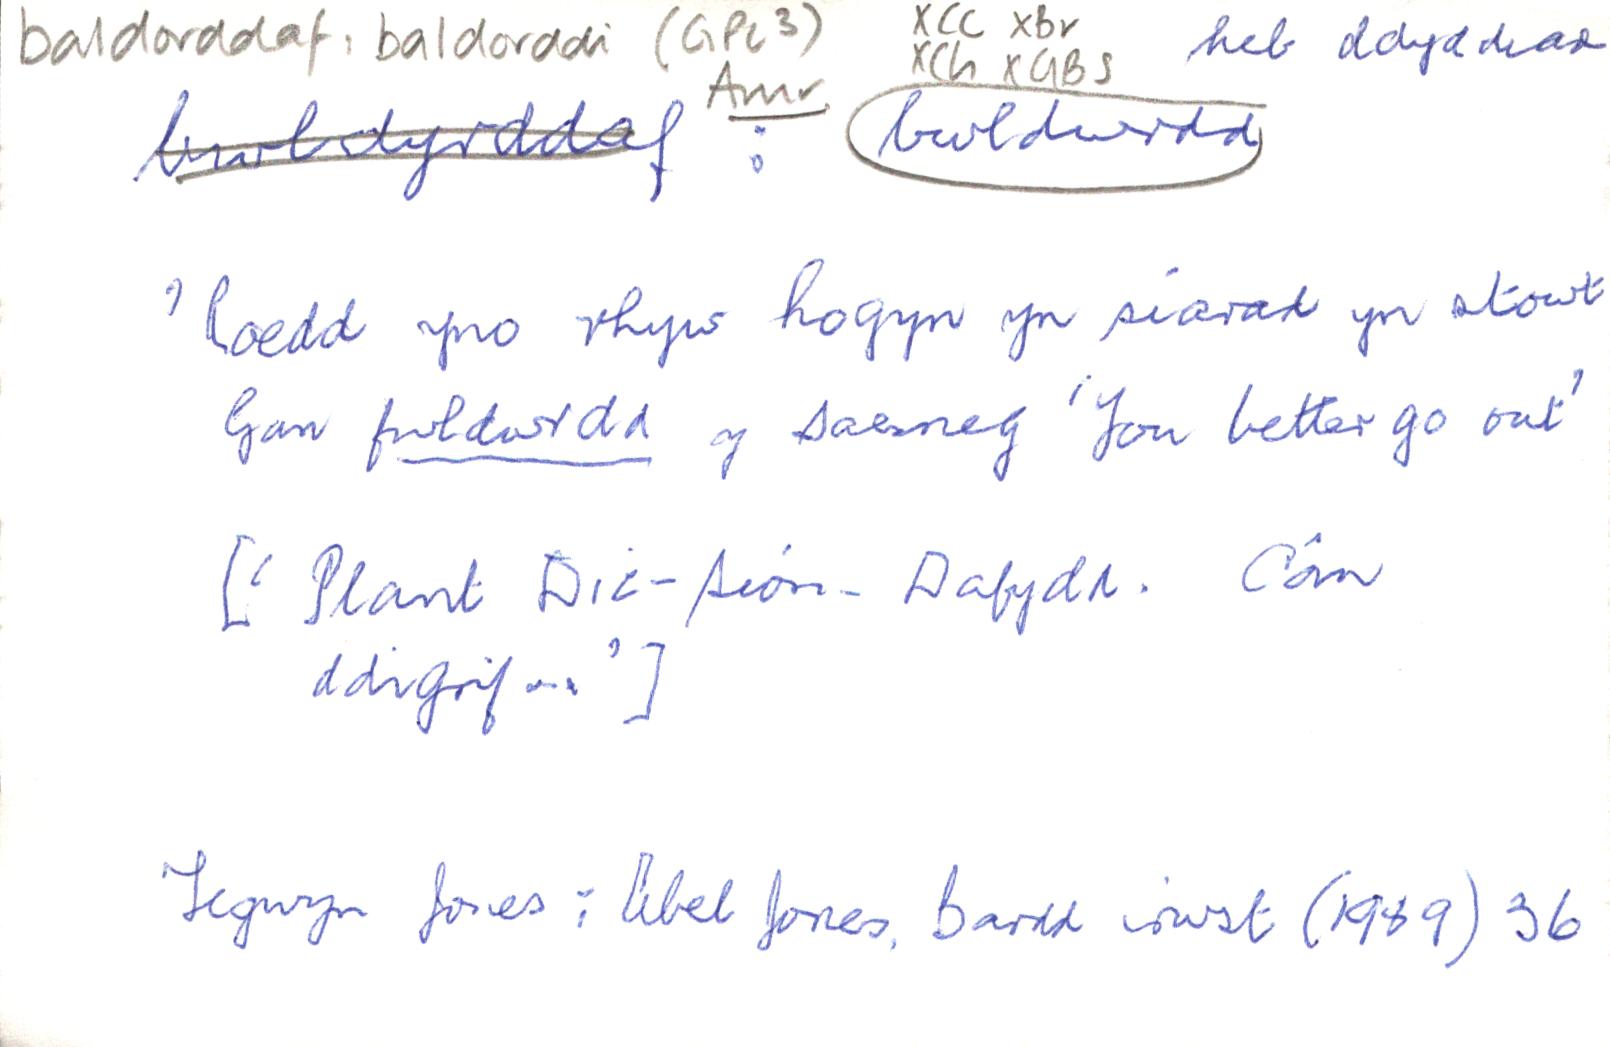 baldorddaf: baldorddi (GPC3) xCC xbr heb ddyddiad
xCh xGBS
Amr.
bwldyrddaf : bwldwrdd
'Roedd yno rhyw hogyn yn siarad yn stowt
Gan fwldwrdd y Saesneg 'You better go out'
[' Plant Dic-Siôn-Dafydd. Cân
ddigrif ...']
Tegwyn Jones : Abel Jones, Bardd Crwst (1989) 36